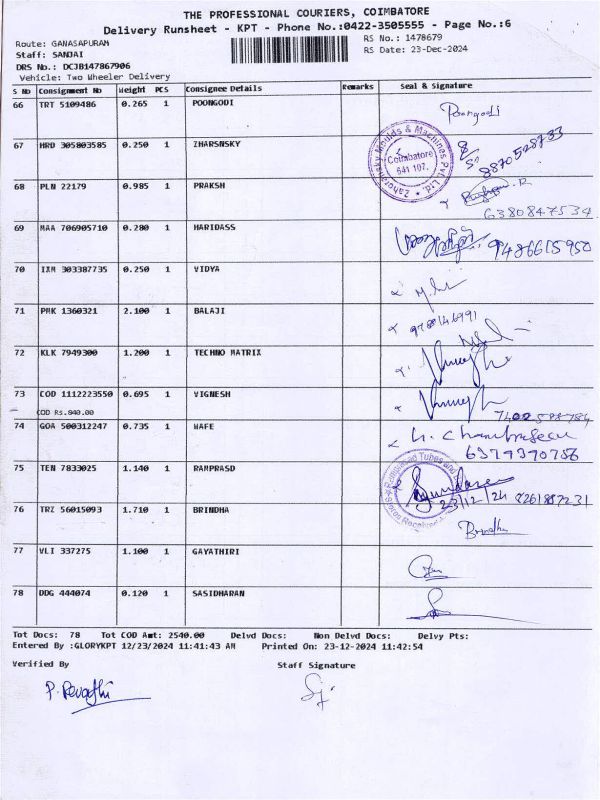 THE PROFESSIONAL COURIERS, COIMBATORE
Delivery Runsheet - KPT - Phone No.:0422-3505555 - Page No.:6
Route: GANASAPURAM
RS No.: 1478679
Staff: SANJAI
RS Date: 23-Dec-2024
DRS No.: DCJB147867906
Vehicle: Two Wheeler Delivery
S No Consignment No Weight PCS Consignee Details Remarks Seal & Signature
66 TRT 5109486 0.265 1 POONGODI Poongodi
67 HRD 305803585 0.250 1 ZHARSNSKY
Zahoransky Moulds & Machines Pvt. Ltd.
Coimbatore
641 107.
8870528733
68 PLN 22179 0.985 1 PRAKSH
6380847534
69 MAA 706905710 0.280 1 HARIDASS 9486615950
70 IXM 303387735 0.250 1 VIDYA
71 PMK 1360321 2.100 1 BALAJI
72 KLK 7949300 1.200 1 TECHNO MATRIX
73 COD 1112223550 0.695 1 VIGNESH
COD Rs.840.00
74 GOA 500312247 0.735 1 WAFE
6379390756
75 TEN 7833025 1.140 1 RAMPRASD
23/12/24
76 TRZ 56015093 1.710 1 BRINDHA Brindha
77 VLI 337275 1.100 1 GAYATHIRI
78 DDG 444074 0.120 1 SASIDHARAN
Tot Docs: 78 Tot COD Amt: 2540.00 Delvd Docs: Non Delvd Docs: Delvy Pts:
Entered By :GLORYKPT 12/23/2024 11:41:43 AM Printed On: 23-12-2024 11:42:54
Verified By Staff Signature
P. Revathi